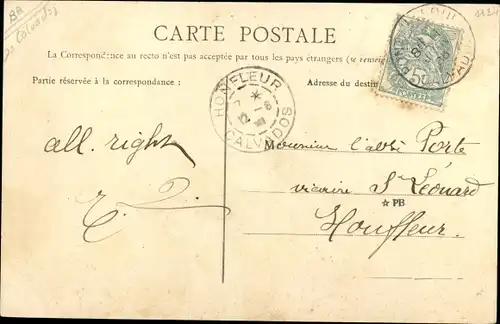 CARTE POSTALE
La Correspondance au recto n'est pas acceptée par tous les pays étrangers (se renseig
Partie réservée à la correspondance :
Adresse du destin
HONFLEUR
CALVADOS
all. right
Monsieur l'abbé Porte
vicaire St Léonard
PB
Honfleur.